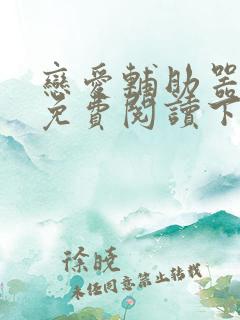 戀愛輔助器
免費閱讀下
徐曉
未經同意禁止轉載